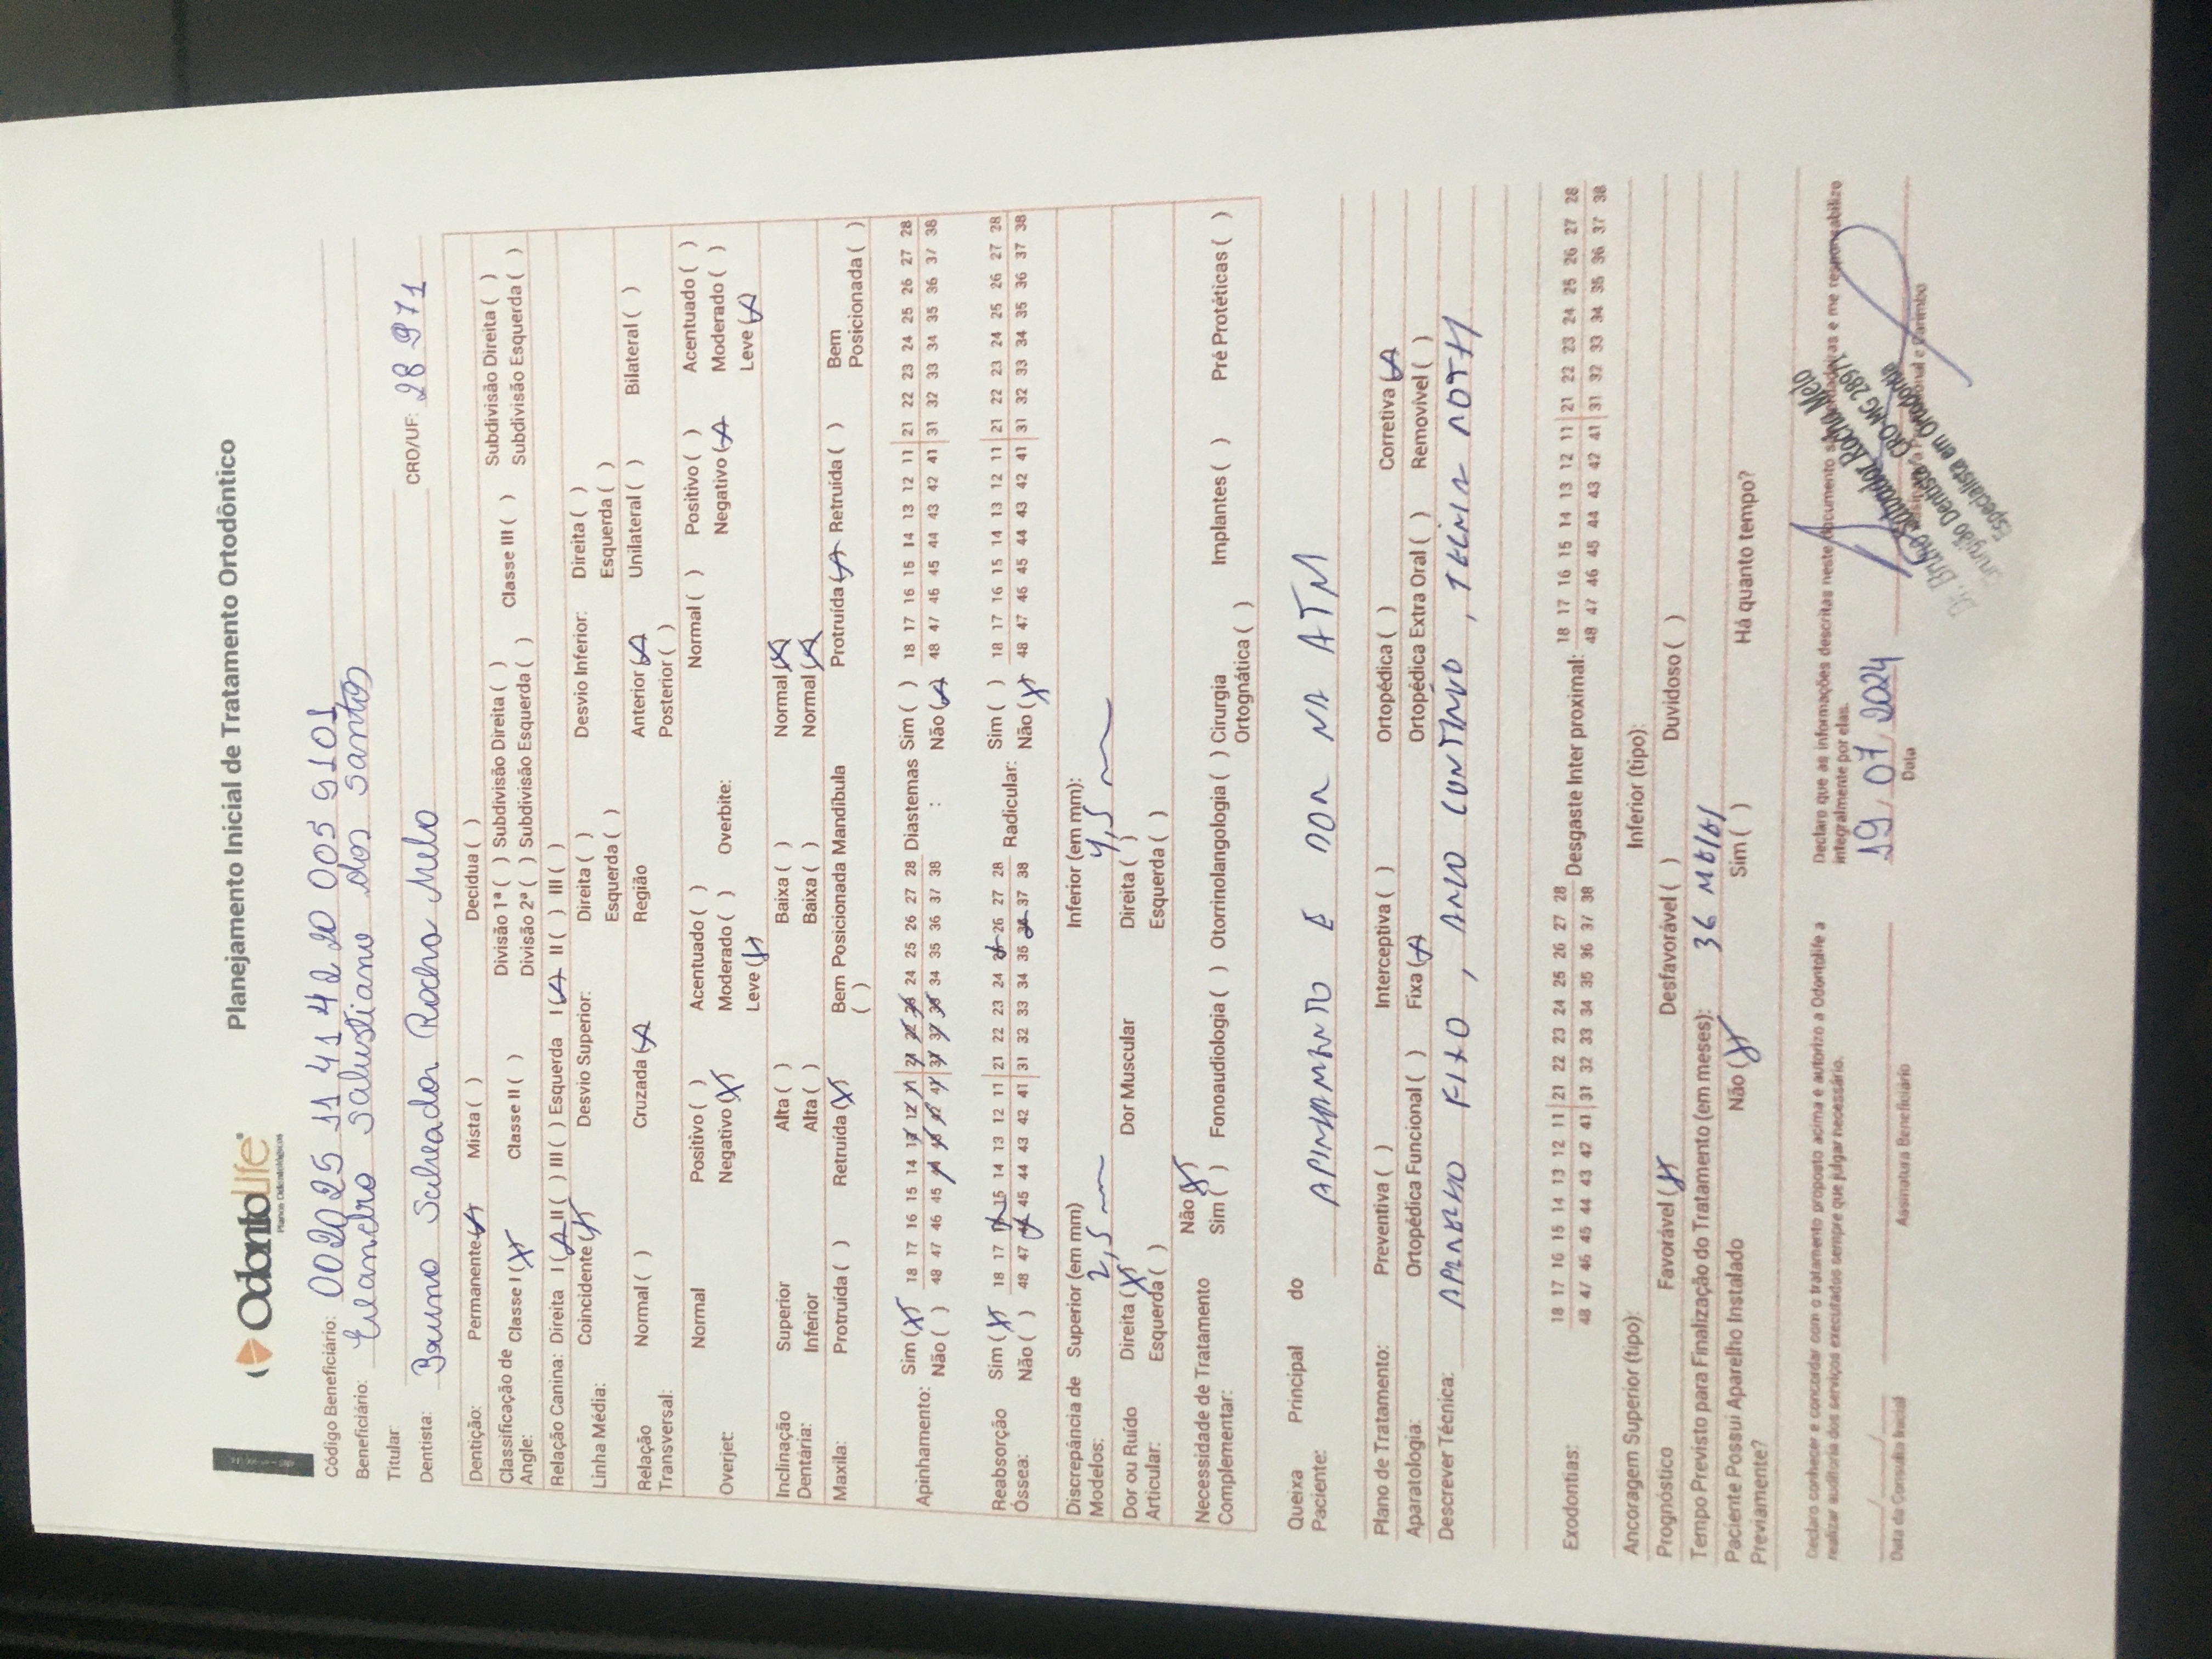 OdontoLife®
Planos Odontológicos
Planejamento Inicial de Tratamento Ortodôntico
Código Beneficiário: 002025 11 41 42 20 005 9101
Beneficiário: Salustiano dos Santos
Titular:
Dentista: Bruno Salvador Rocha Melo CRO/UF: 28 971
Dentição: Permanente (X) Mista ( ) Decídua ( )
Classificação de Angle: Classe I (X) Classe II ( ) Divisão 1ª ( ) Subdivisão Direita ( ) Classe III ( ) Subdivisão Direita ( )
Divisão 2ª ( ) Subdivisão Esquerda ( ) Subdivisão Esquerda ( )
Relação Canina: Direita I (X) II ( ) III ( ) Esquerda I (X) II ( ) III ( )
Linha Média: Coincidente (X) Desvio Superior: Direita ( ) Desvio Inferior: Direita ( )
Esquerda ( ) Esquerda ( )
Relação Transversal: Normal ( ) Cruzada (X) Região Anterior (X) Unilateral ( ) Bilateral ( )
Posterior ( )
Overjet: Normal Positivo ( ) Acentuado ( ) Overbite: Normal ( ) Positivo ( ) Acentuado ( )
Negativo (X) Moderado ( ) Negativo (X) Moderado ( )
Leve (X) Leve (X)
Inclinação Dentária: Superior Alta ( ) Baixa ( ) Normal (X)
Inferior Alta ( ) Baixa ( ) Normal (X)
Maxila: Protruída ( ) Retruída (X) Bem Posicionada ( ) Mandíbula Protruída (X) Retruída ( ) Bem Posicionada ( )
Apinhamento: Sim (X) 18 17 16 15 14 13 12 11 21 22 23 24 25 26 27 28 Diastemas : Sim ( ) 18 17 16 15 14 13 12 11 21 22 23 24 25 26 27 28
Não ( ) 48 47 46 45 44 43 42 41 31 32 33 34 35 36 37 38 Não (X) 48 47 46 45 44 43 42 41 31 32 33 34 35 36 37 38
Reabsorção Óssea: Sim (X) 18 17 16 15 14 13 12 11 21 22 23 24 25 26 27 28 Radicular: Sim ( ) 18 17 16 15 14 13 12 11 21 22 23 24 25 26 27 28
Não ( ) 48 47 46 45 44 43 42 41 31 32 33 34 35 36 37 38 Não (X) 48 47 46 45 44 43 42 41 31 32 33 34 35 36 37 38
Discrepância de Modelos: Superior (em mm) 2,5 mm Inferior (em mm): 4,5 mm
Dor ou Ruído Articular: Direita (X) Dor Muscular Direita ( )
Esquerda ( ) Esquerda ( )
Necessidade de Tratamento Complementar: Não (X)
Sim ( ) Fonoaudiologia ( ) Otorrinolangologia ( ) Cirurgia Ortognática ( ) Implantes ( ) Pré Protéticas ( )
Queixa Principal do Paciente: APINHAMENTO E DOR NA ATM
Plano de Tratamento: Preventiva ( ) Interceptiva ( ) Ortopédica ( ) Corretiva (X)
Aparatologia: Ortopédica Funcional ( ) Fixa (X) Ortopédica Extra Oral ( ) Removível ( )
Descrever Técnica: APARELHO FIXO, ARCO CONTÍNUO, TÉCNICA ROTH
Exodontias: 18 17 16 15 14 13 12 11 21 22 23 24 25 26 27 28 Desgaste Inter proximal: 18 17 16 15 14 13 12 11 21 22 23 24 25 26 27 28
48 47 46 45 44 43 42 41 31 32 33 34 35 36 37 38 48 47 46 45 44 43 42 41 31 32 33 34 35 36 37 38
Ancoragem Superior (tipo): Inferior (tipo):
Prognóstico Favorável (X) Desfavorável ( ) Duvidoso ( )
Tempo Previsto para Finalização do Tratamento (em meses): 36 MESES
Paciente Possui Aparelho Instalado Previamente? Não (X) Sim ( ) Há quanto tempo?
Declaro conhecer e concordar com o tratamento proposto acima e autorizo a Odontolife a
realizar auditoria dos serviços executados sempre que julgar necessário.
Declaro que as informações descritas neste documento são verdadeiras e me responsabilizo
integralmente por elas.
19, 07, 2024
Data da Consulta Inicial Assinatura Beneficiário Data Assinatura Profissional e Carimbo
Dr. Bruno Salvador Rocha Melo
Cirurgião Dentista CRO-MG 28971
Especialista em Ortodontia